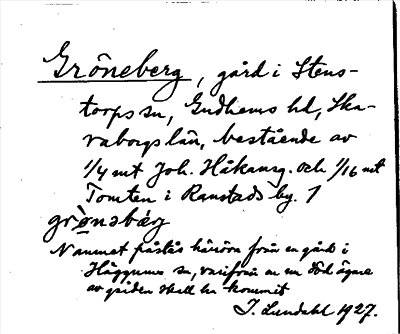 Gröneberg, gård i Stens-
torps sn, Gudhems hd, Ska-
raborgs län, bestående av
1/4 mt Joh. Håkansg. och 1/16 mt
Tomten i Ranstads by. 1
grö̀nəbærj
Namnet påstås härröra från en gård i
Häggums sn, varifrån en nu död ägare
av gården skall ha kommit
I. Lundahl 1927.